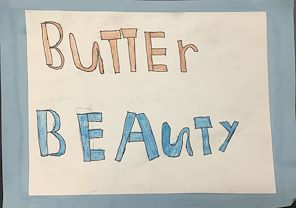 BuTTEr
BEAuTY